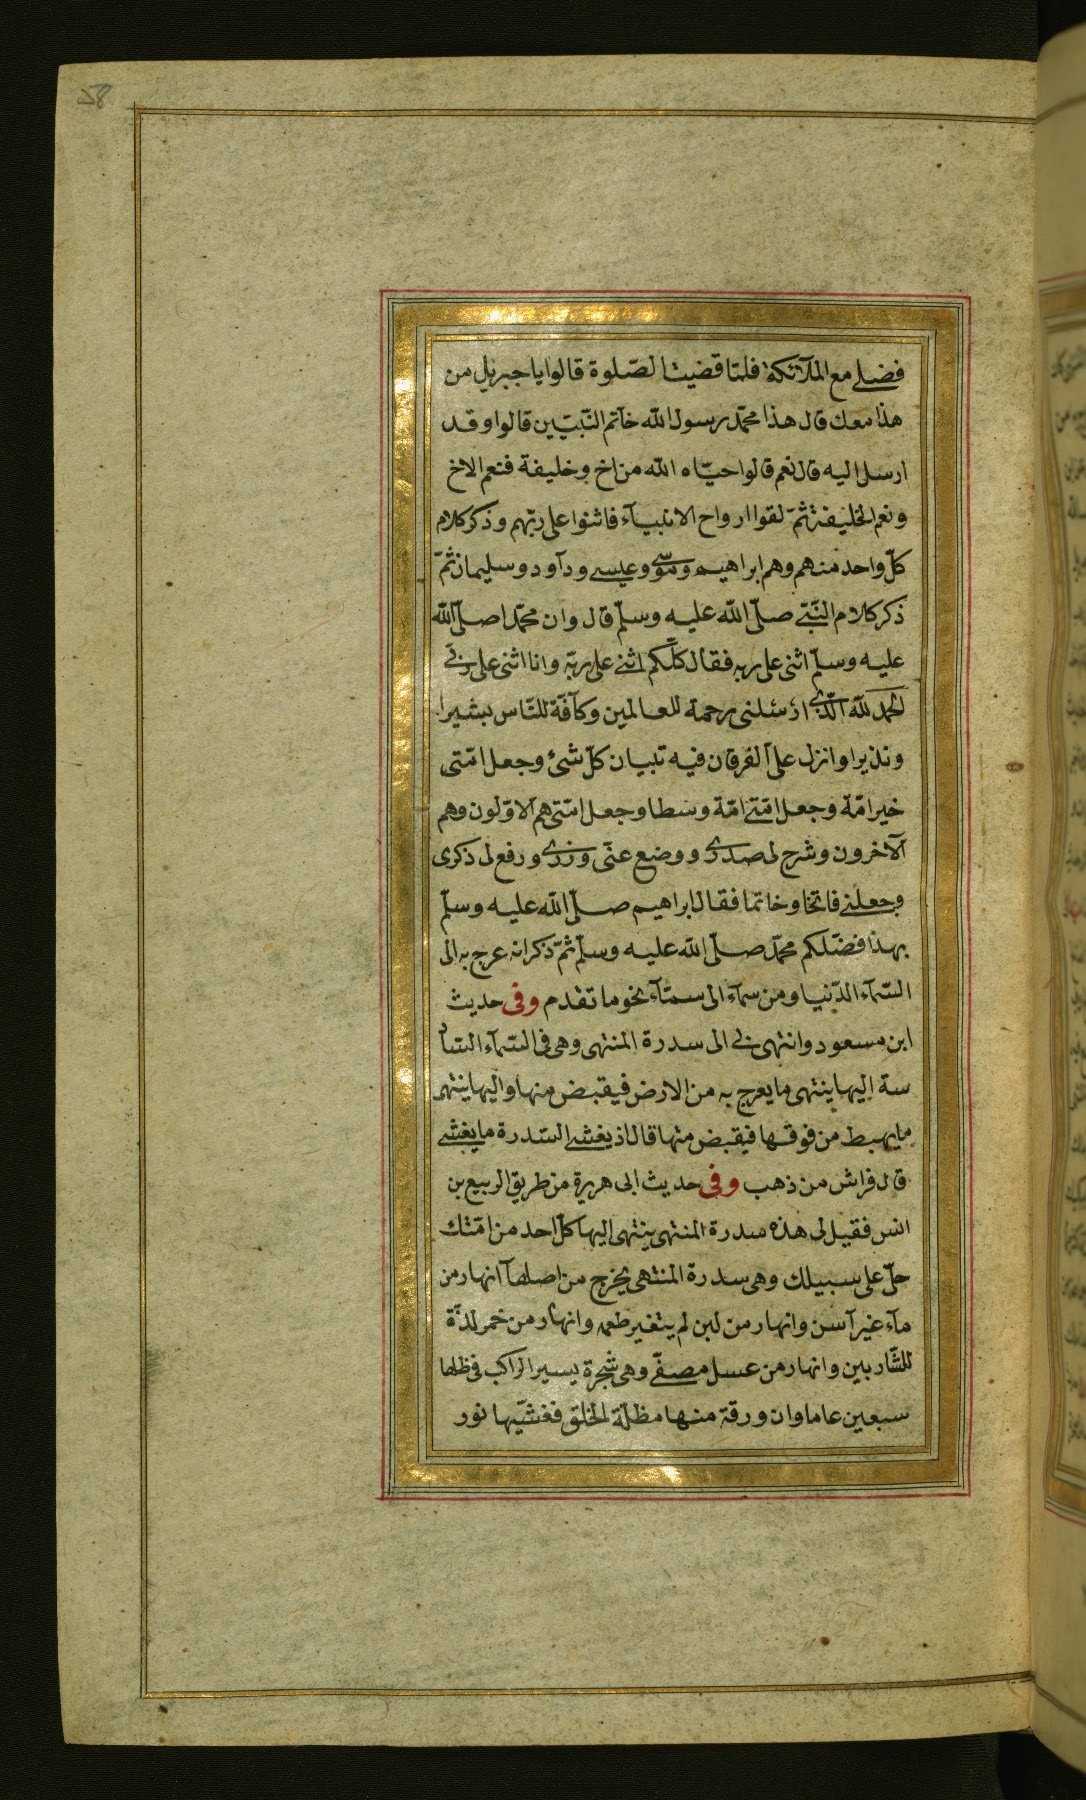 58
فصلى مع الملآئكة فلمّا قضيت الصّلوة قالوا يا جبريل من
هذا معك قال هذا محمّد رسول الله خآتم النّبيّين قالوا وقد
ارسل اليه قال نعم قالوا حيّاه الله من اخ وخليفة فنعم الاخ
ونعم الخليفة ثمّ لقوا ارواح الانبيآء فاثنوا على ربّهم وذكر كلام
كلّ واحد منهم وهم ابراهيم وموسى وعيسى وداود وسليمان ثمّ
ذكر كلام النّبىّ صلّى الله عليه وسلّم قال وان محمّدا صلّى الله
عليه وسلّم اثنى على ربه فقال كلّكم اثنى على ربّه وانا اثنى على ربّى
الحمد لله الّذى ارسلنى رحمة للعالمين وكآفّة للنّاس بشيرا
ونذيرا وانزل علىّ الفرقان فيه تبيان كلّ شئ وجعل امّتى
خير امّة وجعل امّتى امّة وسطا وجعل امّتى هم الاوّلون وهم
الآخرون وشرح لى صدرى ووضع عنّى وزرى ورفع لى ذكرى
وجعلنى فاتحا وخاتما فقال ابراهيم صلّى الله عليه وسلّم
بهذا فضلكم محمّد صلّى الله عليه وسلّم ثمّ ذكر انه عرج به الى
السّمآء الدّنيا ومن سمآء الى سمآء نحو ما تقدم وفى حديث
ابن مسعود وانتهى بى الى سدرة المنتهى وهى فى السّمآء السّا
سة اليها ينتهى ما يعرج به من الارض فيقبض منها واليها ينتهى
ما يهبط من فوقها فيقبض منها قال اذ يغشى السّدرة ما يغشى
قال فراش من ذهب وفى حديث ابى هريرة من طريق الربيع بن
انس فقيل لى هذه سدرة المنتهى ينتهى اليها كلّ احد من امّتك
خلّ على سبيلك وهى سدرة المنتهى يخرج من اصلها انهار من
مآء غير آسن وانهار من لبن لم يتغير طعمه وانهار من خمر لذّة
للشّاربين وانهار من عسل مصفّى وهى شجرة يسير الراكب فى ظلها
سبعين عاما وان ورقة منها مظلّة الخلق فغشّيها نور